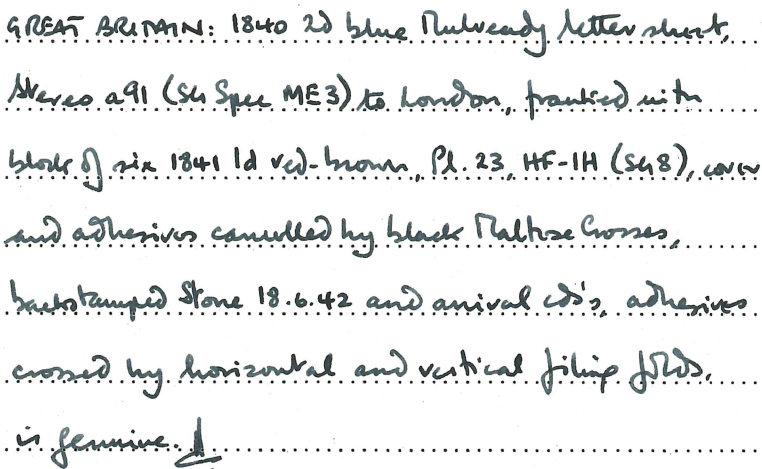 GREAT BRITAIN: 1840 2d blue Mulready letter sheet,
Stereo a91 (SG Spec ME3) to London, franked with
block of six 1841 1d red-brown, Pl. 23, HF-IH (SG8), cover
and adhesives cancelled by black Maltese Crosses,
backstamped Stone 18.6.42 and arrival cds's, adhesives
crossed by horizontal and vertical filing folds,
is genuine.